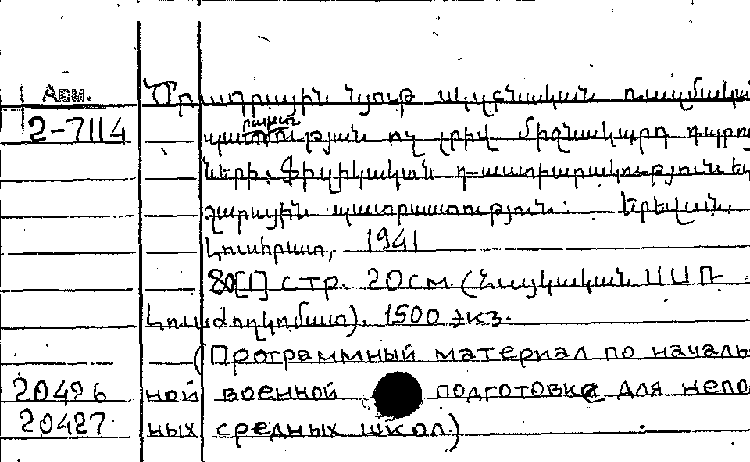 Арм. Ծրագրային նյութ սկզբնական ռազմական
2-7114 պատրաստության ոչ լրիվ միջնակարգ դպրոց
ների. Ֆիզիկական դաստիարակություն եւ
շարային պատրաստություն: Երեւան,
Լուսհրատ, 1941
80[1] стр. 20см (Հայկական ՍՍՌ
Լուսժողկոմատ). 1500 экз.
(Программный материал по началь
20496 ной военной подготовке для непо
20427 ных средных школ.)